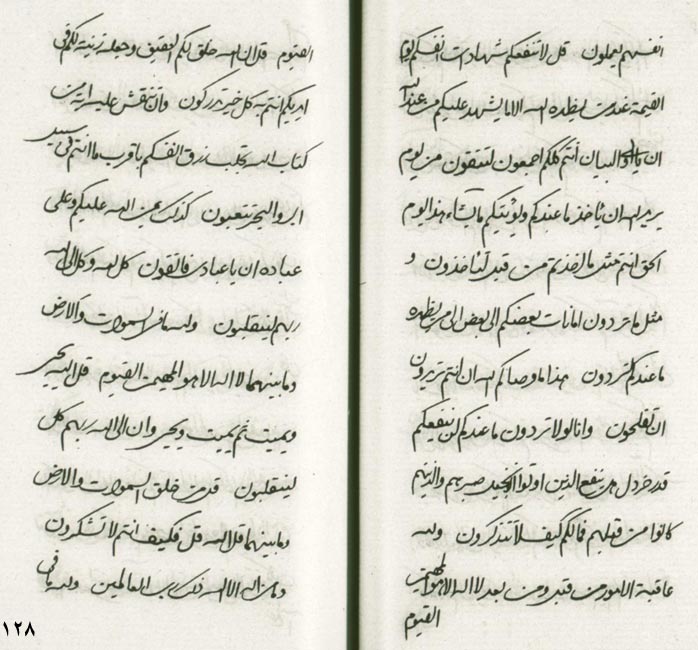 انفسهم يعملون قل لا تنفعكم شهادات انفسكم يوم
القيمة عند من يظهره الله الا ما يشهد عليكم من عند الله
ان يا اولي البيان انتم كلكم اجمعون لتتقون من يوم
يريد الله ان ياخذ ما عندكم ولؤتينكم ما يشاء هذا اليوم
الحق انتم مثل ما اخذتم من قبل لتأخذون و
مثل ما تردون امانات بعضكم الى بعض الى من يظهره
ما عندكم لتردون هذا ما وصاكم الله ان انتم تريدون
ان تفلحون وانا لولا تردون ما عندكم لن ينفعكم
قدر خردل هل ينفع الذين اوتوا الانجيل صبرهم والذينهم
كانوا من قبلهم فما لكم كيف لا تتذكرون ولله
عاقبة الامور من قبل ومن بعد لا اله الا هو المهيمن
القيوم
القيوم قل ان الله خلق لكم العقيق وجعله زينة لكم في
ايديكم انتم به كل خير تدركون وان تنقش عليه اية من
كتاب الله تجلب رزق انفسكم باقرب ما انتم في سبيل
البر والبحر تتعبون كذلك يمن الله عليكم وعلى
عباده ان يا عبادي فاتقون كل لله وكل الى الله
ربهم لينقلبون ولله ما في السموات والارض
وما بينهما لا اله الا هو المهيمن القيوم قل الله يحيي
ويميت ثم يميت ويحيي وان الى الله ربهم كل
لينقلبون قل من خلق السموات والارض
وما بينهما قل الله قل فكيف انتم لا تشكرون
وما من اله الا الله ذلك رب العالمين ولله ما في
١٢٨